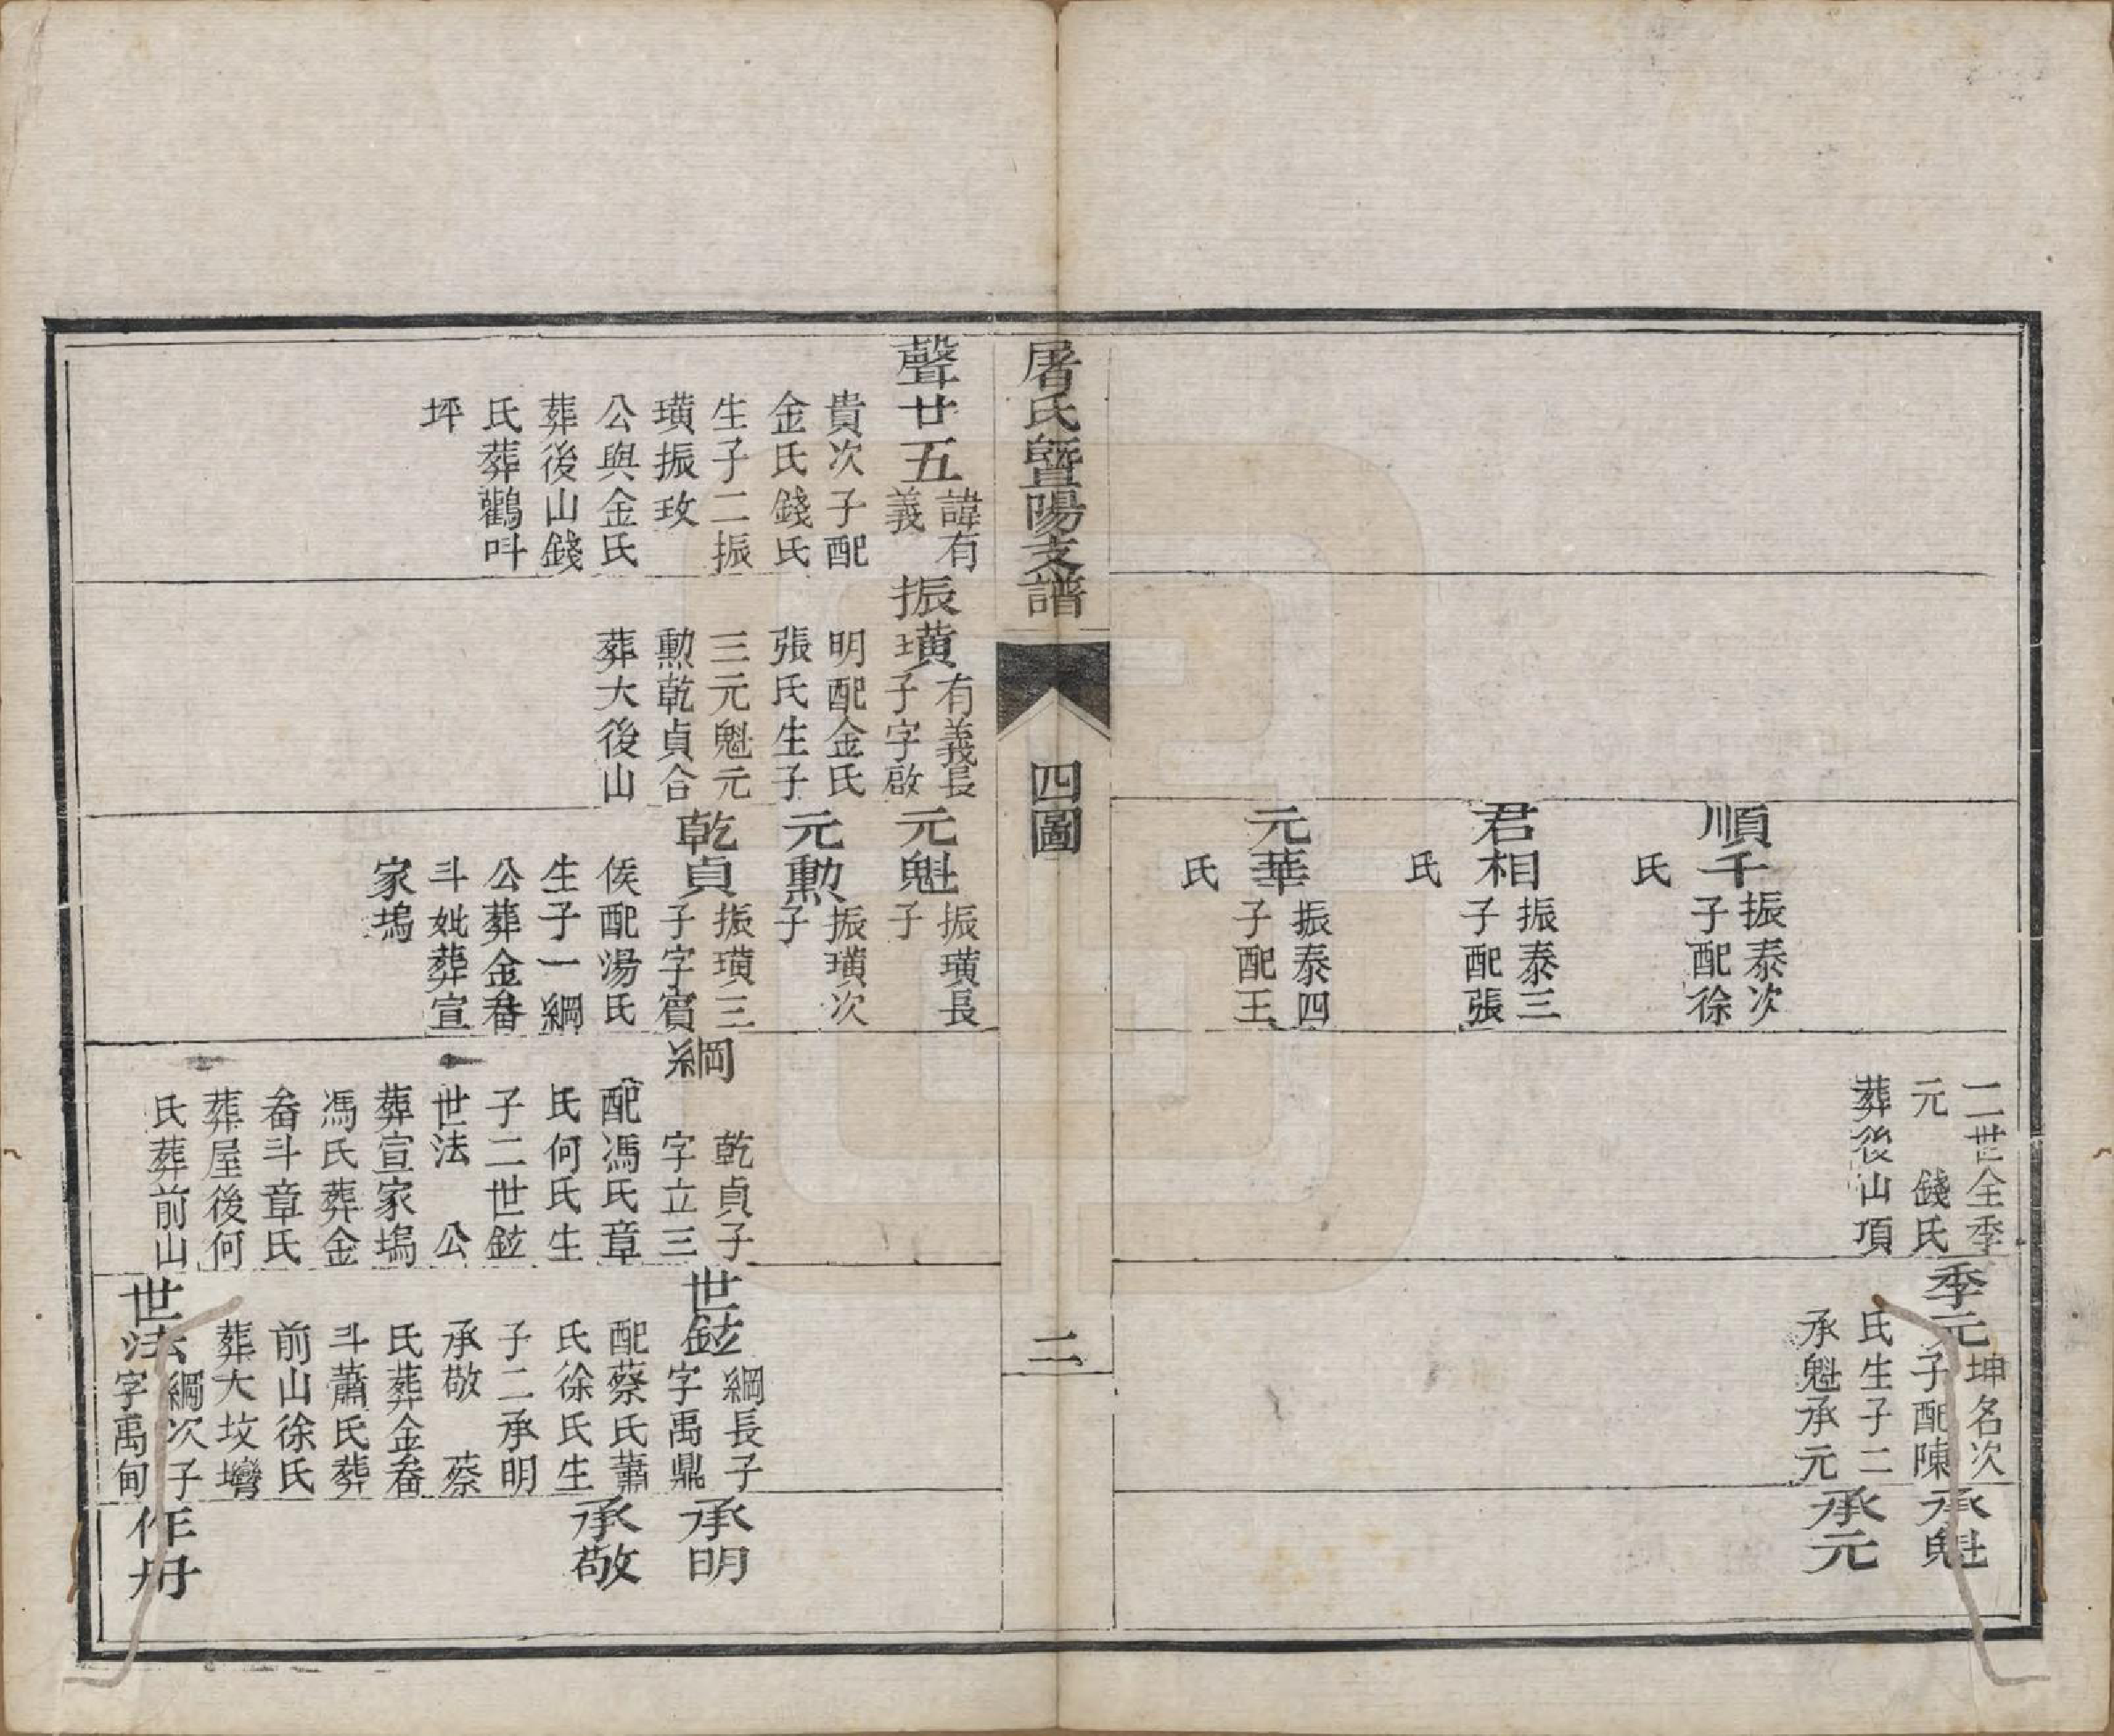 順千 振泰次子配徐氏
君相 振泰三子配張氏
元華 振泰四子配王氏
二世全季
元 錢氏
葬後山項
季元 坤名次子配陳
氏生子二
承魁承元
承魁
承元
屠氏暨陽支譜 四圖 二
聲廿五 諱有義
貴次子配
金氏錢氏
生子二振
璜振玫
公與金氏
葬後山錢
氏葬鸛叫
坪
振璜 有義長子字啟
明配金氏
張氏生子
三元魁元
勲乾貞合
葬大後山
元魁 振璜長子
元勲 振璜次子
乾貞 振璜三子字賓
侯配湯氏
生子一綱
公葬金畚
斗妣葬宣
家塢
綱 乾貞子字立三
配馮氏章
氏何氏生
子二世鉉
世法 公
葬宣家塢
馮氏葬金
畚斗章氏
葬屋後何
氏葬前山
世鉉 綱長子字禹鼎
配蔡氏蕭
氏徐氏生
子二承明
承敬 蔡
氏葬金畚
斗蕭氏葬
前山徐氏
葬大坟塆
世法 綱次子字禹甸
承明
承敬
作丹